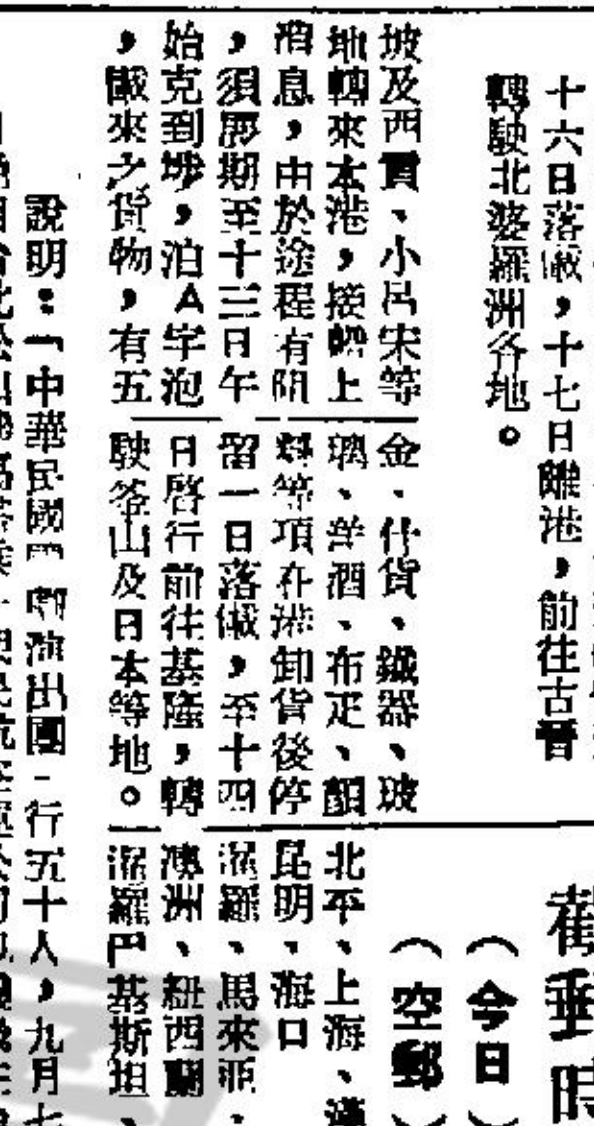 十六日落儎，十七日離港，前往古晉
轉駛北婆羅洲各地。
坡及西貢、小呂宋等
地轉來本港，接獲上
消息，由於途程有阻
，須展期至十三日午
始克到埗，泊A字泡
，儎來之貨物，有五
金、什貨、鐵器、玻
璃、洋酒、布疋、顏
料等項在港卸貨後停
留一日落儎，至十四
日啓行前往基隆，轉
駛釜山及日本等地。
截郵時
（今日）
（空郵）
北平、上海、漢
昆明、海口
暹羅、馬來亞、
澳洲、紐西蘭
暹羅巴基斯坦、
說明：「中華民國 劇演出團一行五十人，九月七